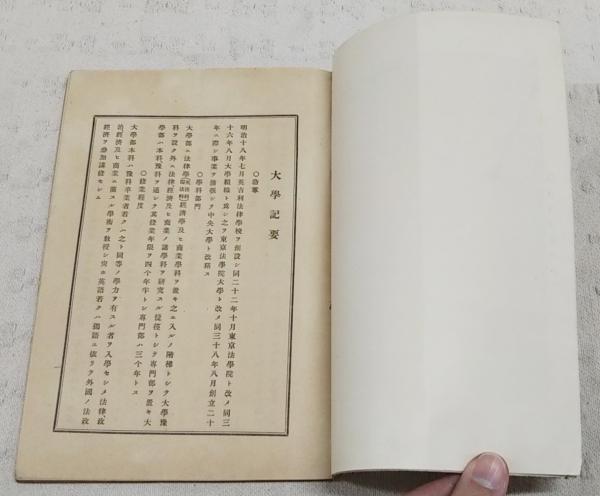 大學記要
〇沿革
明治十八年七月英吉利法律學校ヲ創設シ同二十二年十月東京法學院ト改メ同三
十六年八月大學組織ト爲シ之ヲ東京法學院大學ト改メ同三十八年八月創立二十
年ニ際シ事業ヲ擴張シテ中央大學ト改稱ス
〇學科部門
大學部ニ法律學經濟學及ヒ商業學科ヲ置キ之ニ入ルノ階梯トシテ大學豫
科ヲ設ク外ニ法律經濟及ヒ商業ノ諸學科ヲ研究スル捷徑トシテ專門部ヲ置キ大
學部ハ本科豫科ヲ通シテ其修業年限ヲ四个年半トシ專門部ハ三个年トス
〇修業程度
大學部本科ハ豫科卒業者若クハ之ト同等ノ學力ヲ有スル者ヲ入學セシメ法律政
治經濟及ヒ商業ニ關スル學術ヲ敎授シ突ニ英語若クハ獨語ニ依リテ外國ノ法政
經濟ヲ參加講修セシム